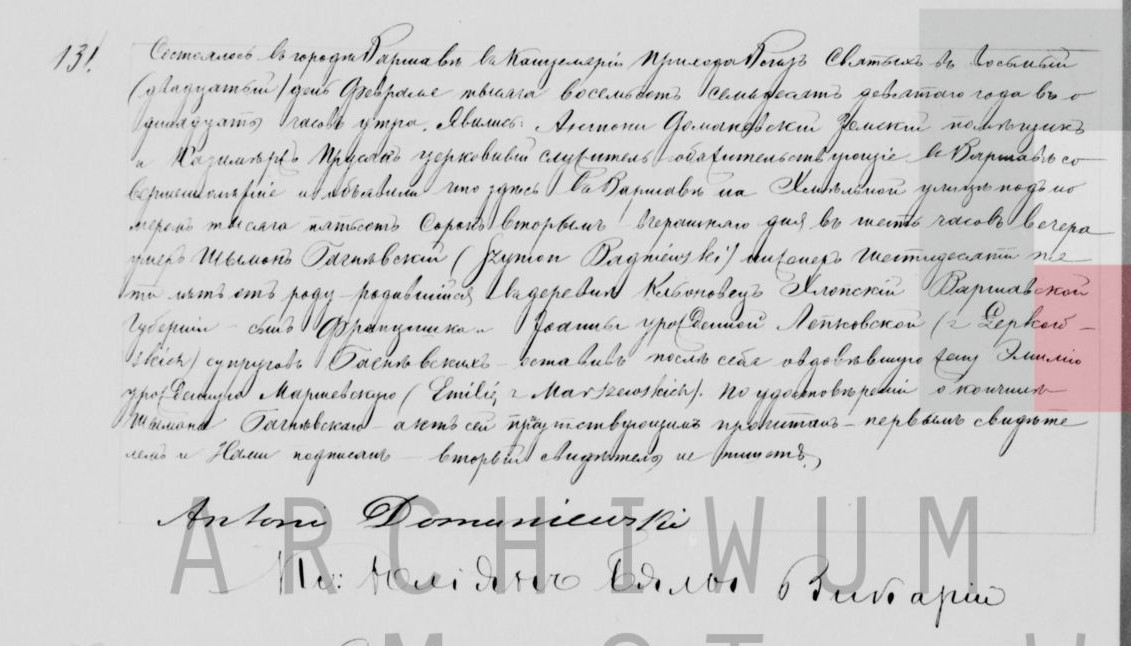 131.
Состоялось въ городѣ Варшавѣ въ Канцеляріи Прихода Всѣхъ Святыхъ въ восьмый
(двадцатый) день Февраля тысяча восемьсотъ семьдесятъ девятаго года въ о
диннадцать часовъ утра. Явились: Антони Доманѣвскій Земскій помѣщикъ
и Казимѣржъ Прусакъ церковный служитель обжительствующіе въ Варшавѣ со
вершеннолѣтніе и объявили что здѣсь въ Варшавѣ на Хмѣльной улицѣ подъ но
меромъ тысяча пятьсотъ сорокъ вторымъ вчерашняго дня въ шесть часовъ вечера
умеръ Шымонъ Багнѣвскій (Szymon Bagniewski) шестидесяти пя
ти лѣтъ отъ роду родившійся въ деревнѣ Варшавской
Губерніи сынъ Францишка и Іоанны урожденной Лепковской (z Lepkow-
skich) супруговъ Багнѣвскихъ оставивъ послѣ себя овдовѣвшую жену Эмилію
урожденную Маршевскую (Emilię z Marszewskich). По удостовѣреніи о кончинѣ
Шымона Багнѣвскаго актъ сей присутствующимъ прочитанъ первымъ свидѣте
лемъ и Нами подписанъ вторый свидѣтель не пишетъ.
Antoni Domaniewski
Кс: Юліянъ Бялы Викарій
ARCHIWUM